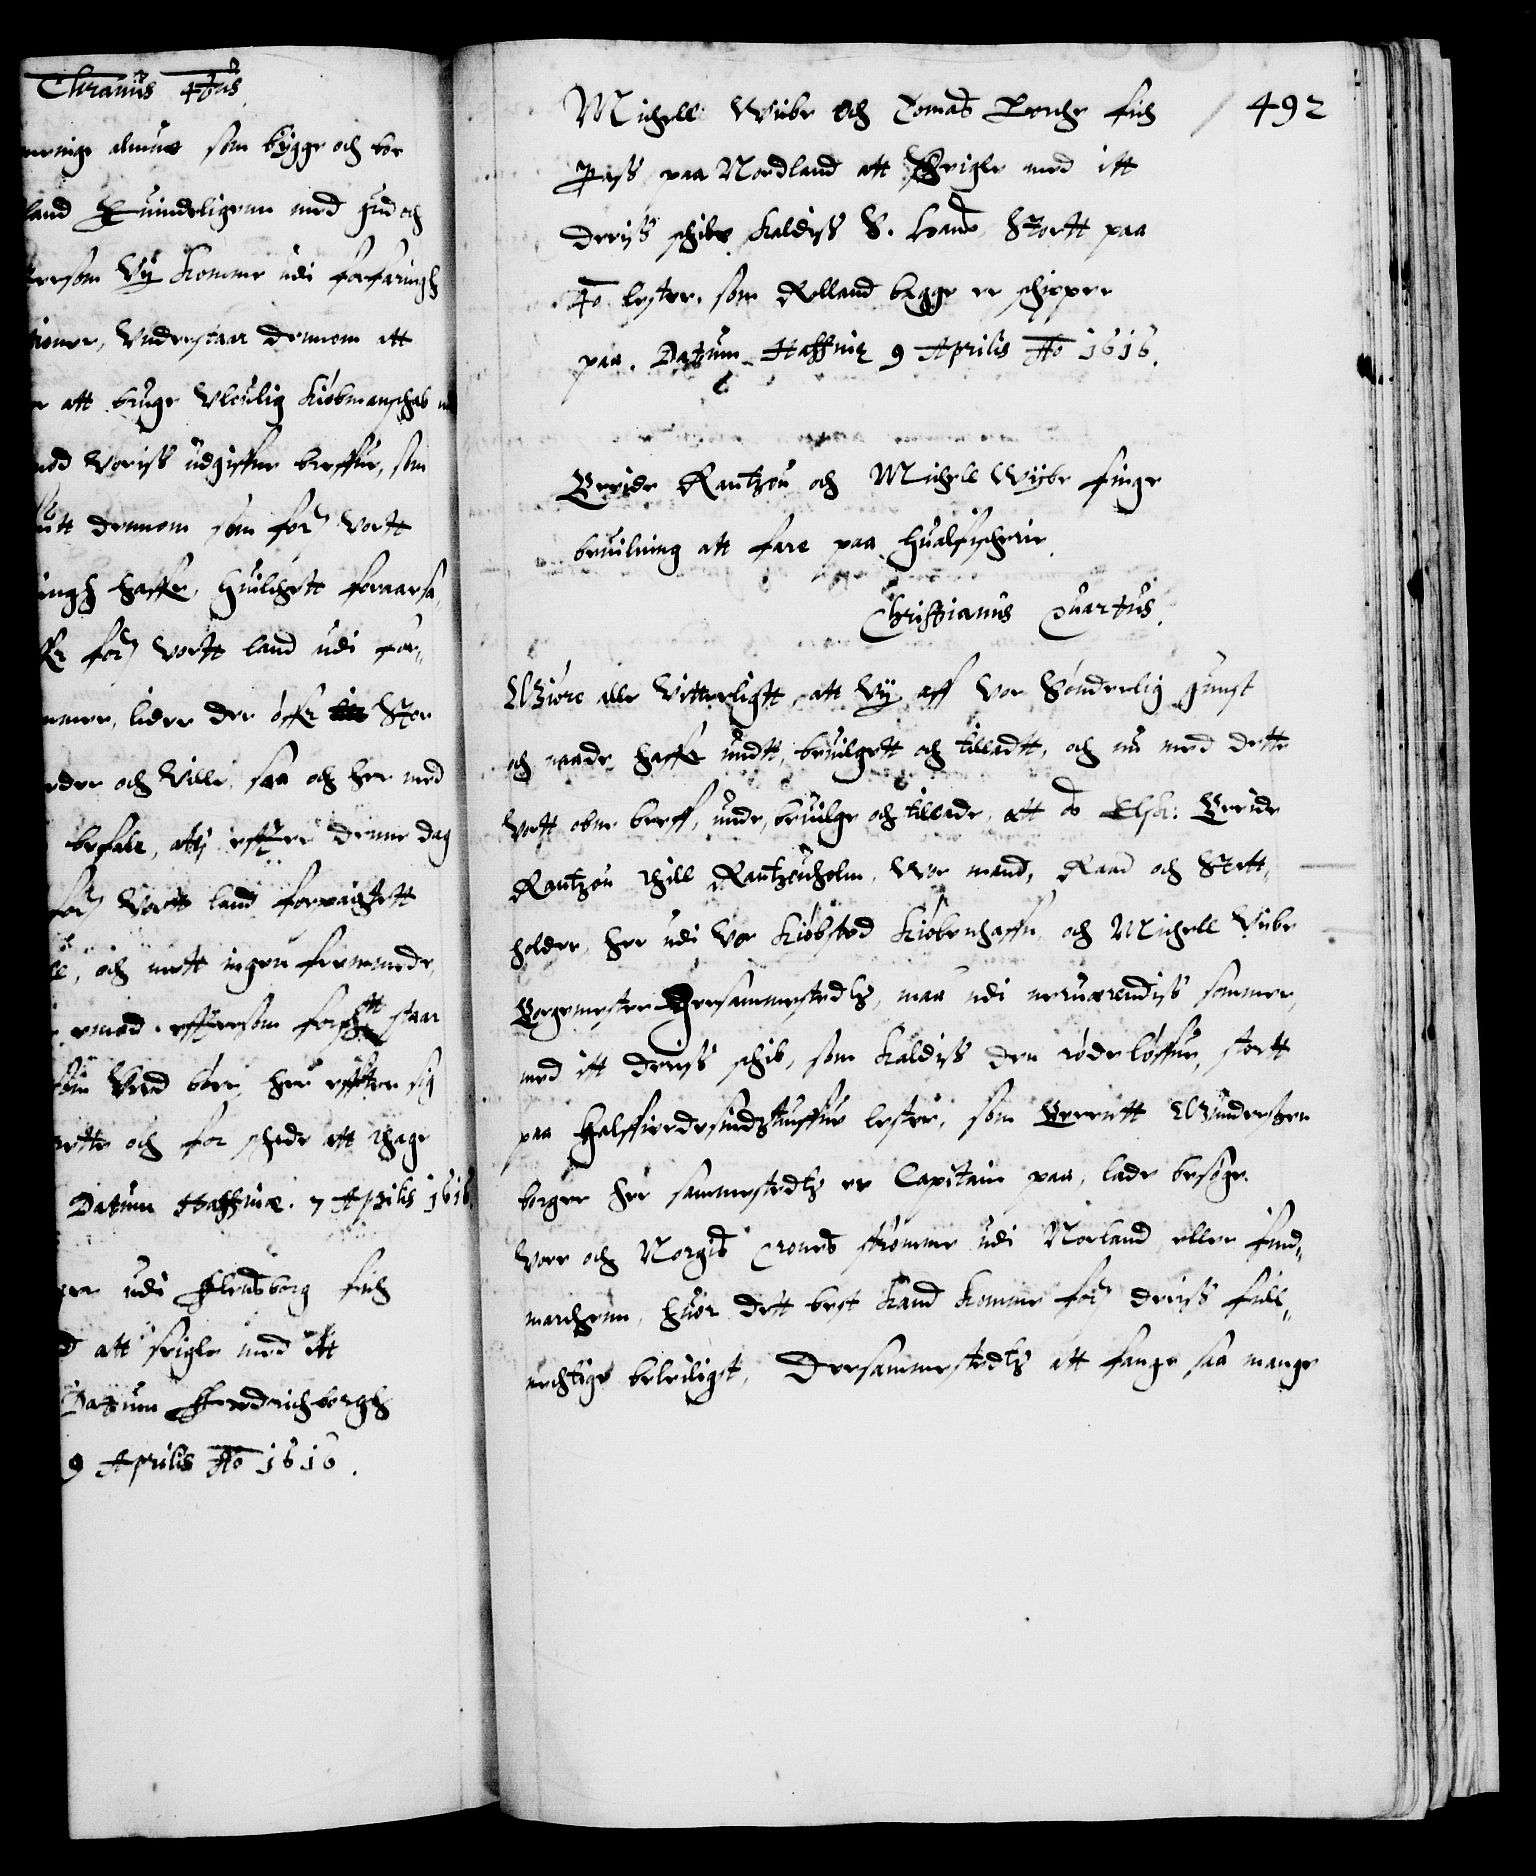 Chranus 4tus
menige almue som bygge och boe
land Kuindeligenn med gud och
ersom Vij komme udi forfaringh
Understaar dennom att
att bruge Uloulig kiøbmanschab
mod Voriss udgiffne breffue, som
dennom som for Vortt
ingh haffe, huilchett foraarsa,
for Vortt land udi for,
lider der offr Stor
och Ville, saa och her med
befale, attj effter denne dag
for Vortt land forpachtett
och nett ingen fremmede
emod. effttersom forschrett staar
Ved bør, her effter sig
rette och for schade att thage
Datum Haffniæ. 7 Aprilis 1616.
udi Flensborg fich
att seigle med ett
Datum Frederichborgh
9 Aprilis Ao 1616.
492
Michell Wibe och Tomas Lorche fich
Pass paa Nordland att Seigle med itt
deriss schib kaldiss S. Hans, Stortt paa
40 lester, som Rolland bagge er schipper
paa. Datum Haffniæ 9 Aprilis Ao 1616.
Breide Rantzou och Michell Wibe finge
beuilning att fare paa Hualfischerie.
Christianus Quartus.
Wiöre alle Vitterligtt, att Vij aff Vor Sönderlig gunst
och naade haffe undtt, beuilgett och tilladtt, och nu med dette
Vortt obne breff, unde, beuilge och tillade, att os Elsk: Breide
Rantzou thill Rantzouholm, Vor mand, Raad och Statt,
holder, her udi Vor Kiøbsted Kiøbenhaffn, och Michell Vibe
Borgemester Hersammestedtz, maa udi neruærendiss sommer,
med itt deriss schib, som kaldiss den röde löffue, stortt
paa halffierdesindztuffue lester, som Berentt Wunderssen
borger her sammestedtz er Capitain paa, lade besøge.
Vore och Norgis Crones strömme udi Norland eller find,
marchenn, huor dett best kand komme for deriss full,
mechtige beleiligst, Dersammestedtz att fange saa mange